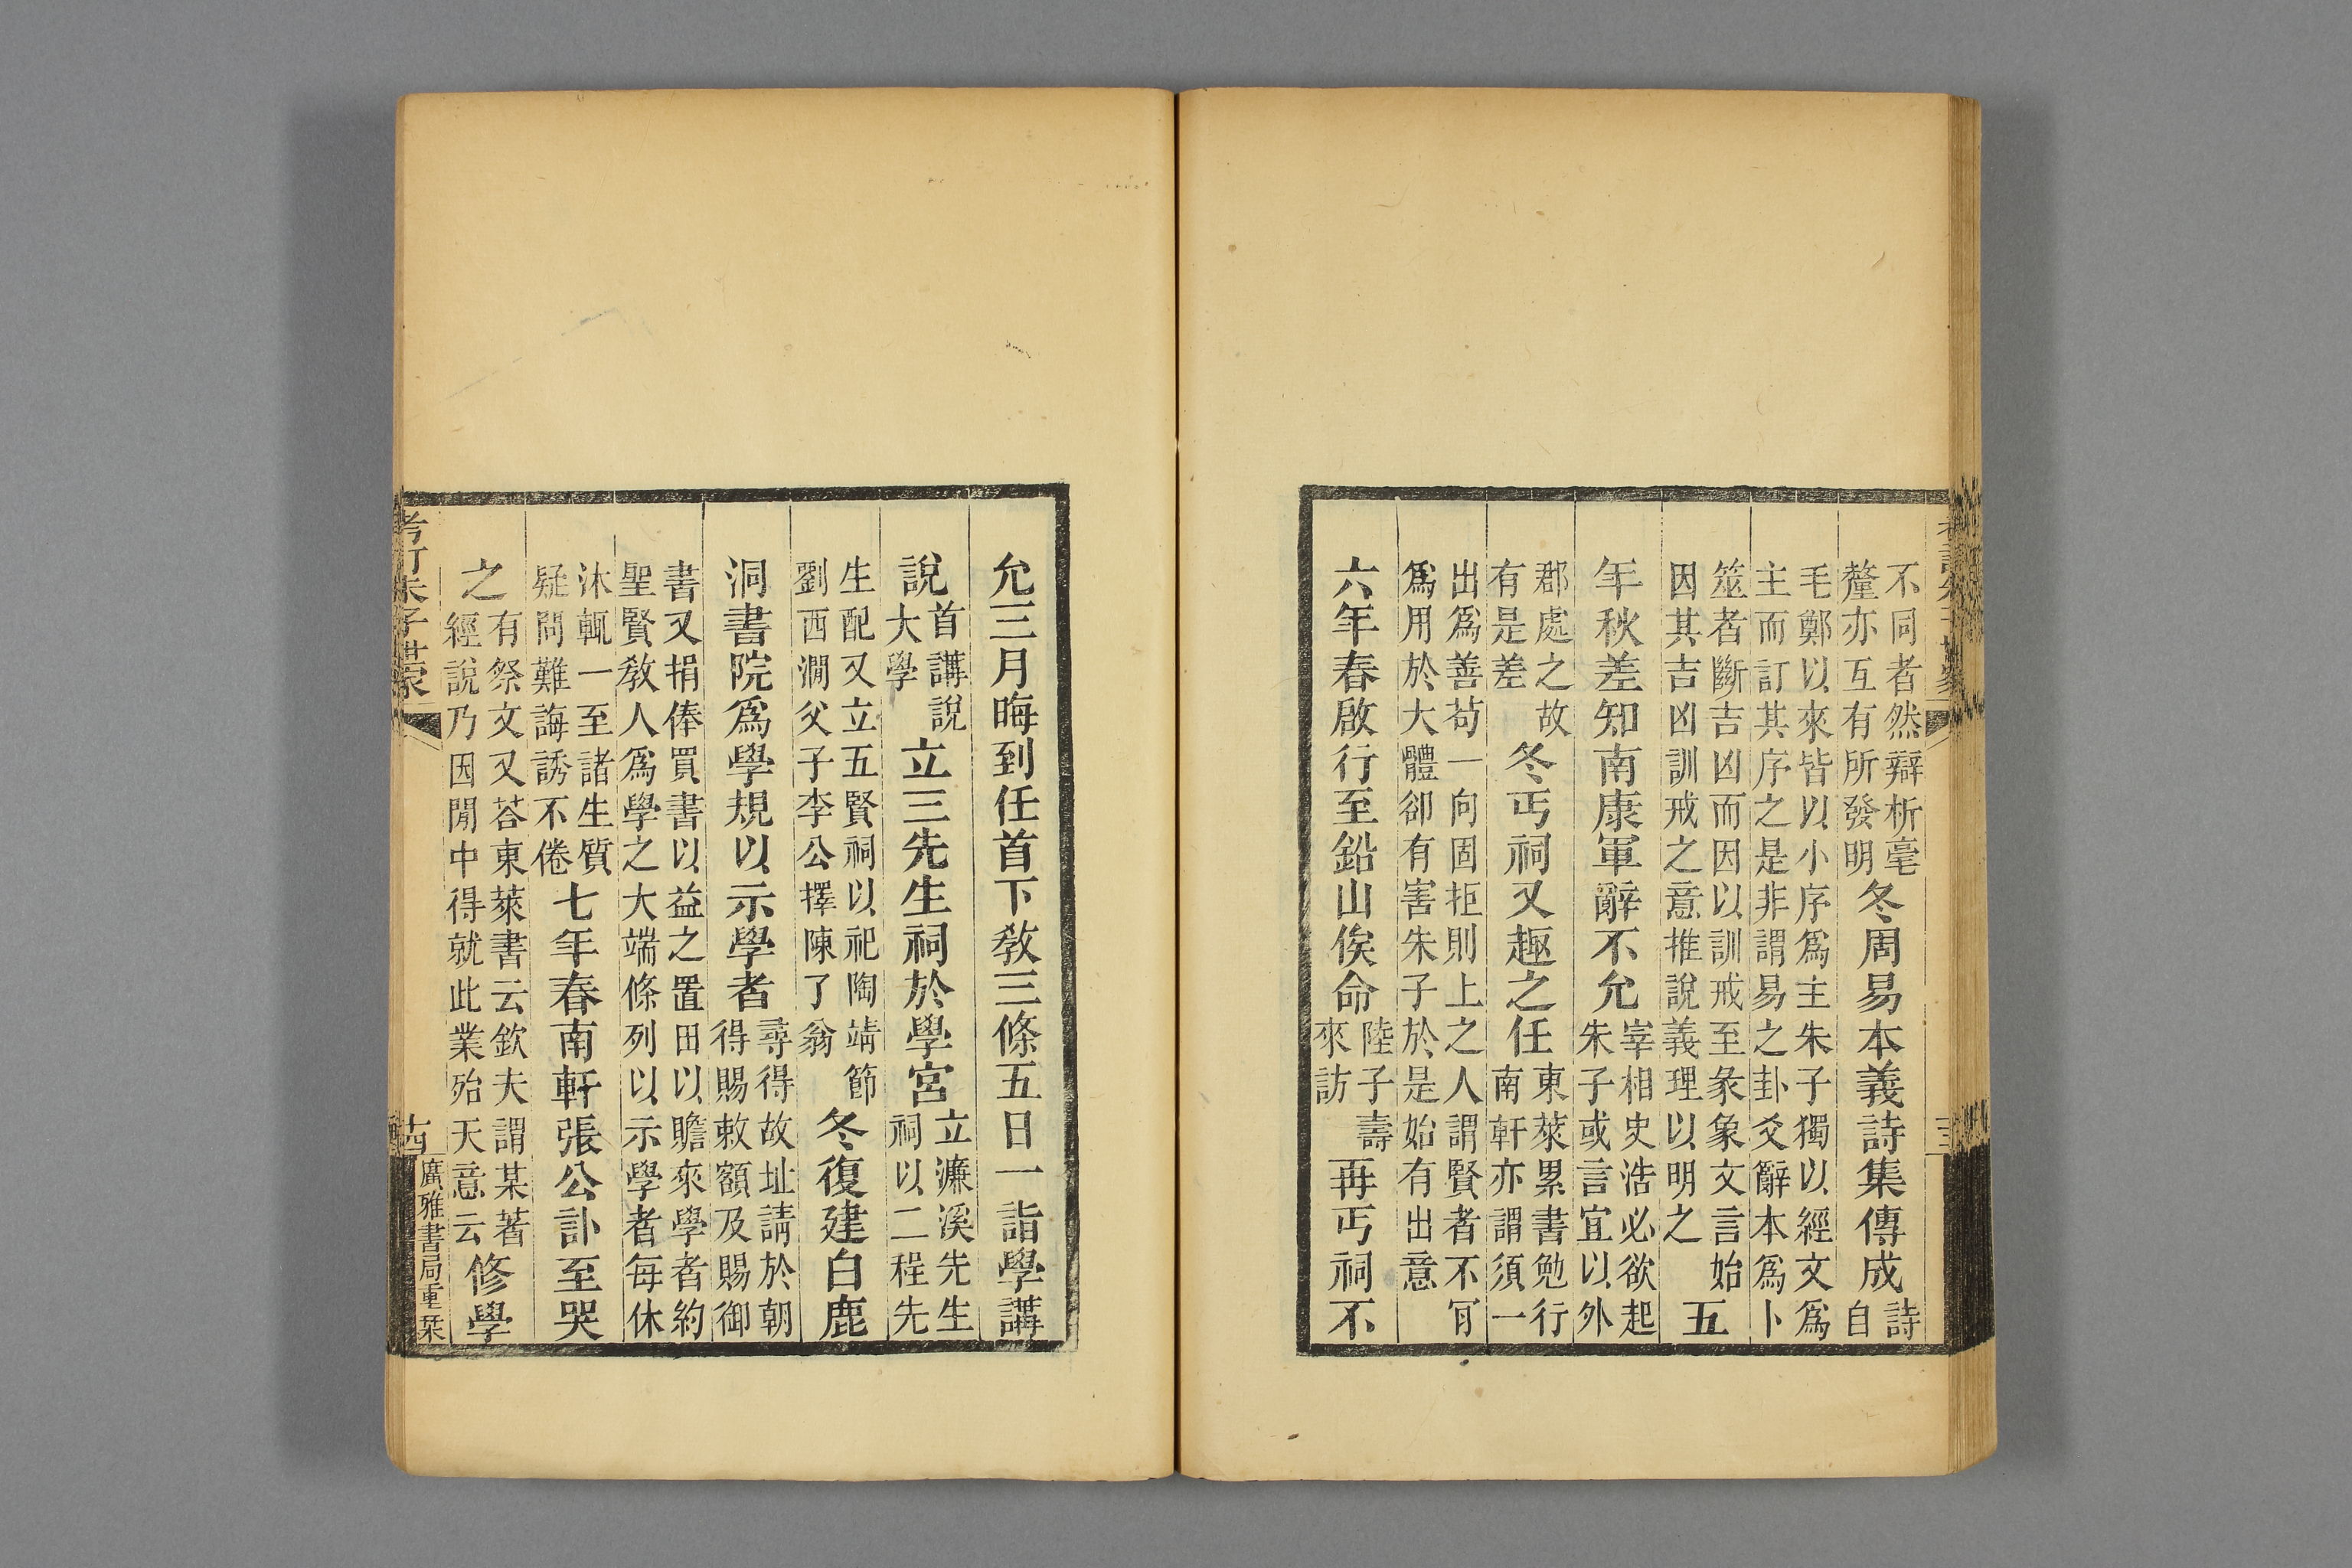 不同者然辯析毫
釐亦互有所發明
冬周易本義詩集傳成
詩
自
毛鄭以來皆以小序爲主朱子獨以經文爲
主而訂其序之是非謂易之卦爻辭本爲卜
筮者斷吉凶而因以訓戒至彖象文言始
因其吉凶訓戒之意推說義理以明之
五
年秋差知南康軍辭不允
宰相史浩必欲起
朱子或言宜以外
郡處之故
有是差
冬丐祠又趣之任
東萊累書勉行
南軒亦謂須一
出爲善苟一向固拒則上之人謂賢者不肎
爲用於大體卻有害朱子於是始有出意
六年春啟行至鉛山俟命
陸子壽
來訪
再丐祠不
允三月晦到任首下敎三條五日一詣學講
說
首講說
大學
立三先生祠於學宮
立濂溪先生
祠以二程先
生配又立五賢祠以祀陶靖節
劉西澗父子李公擇陳了翁
冬復建白鹿
洞書院爲學規以示學者
尋得故址請於朝
得賜敕額及賜御
書又捐俸買書以益之置田以贍來學者約
聖賢敎人爲學之大端條列以示學者每休
沐輒一至諸生質
疑問難誨誘不倦
七年春南軒張公訃至哭
之
有祭文又荅東萊書云欽夫謂某著
經說乃因閒中得就此業殆天意云
修學
考訂朱子世家
十四
廣雅書局重栞